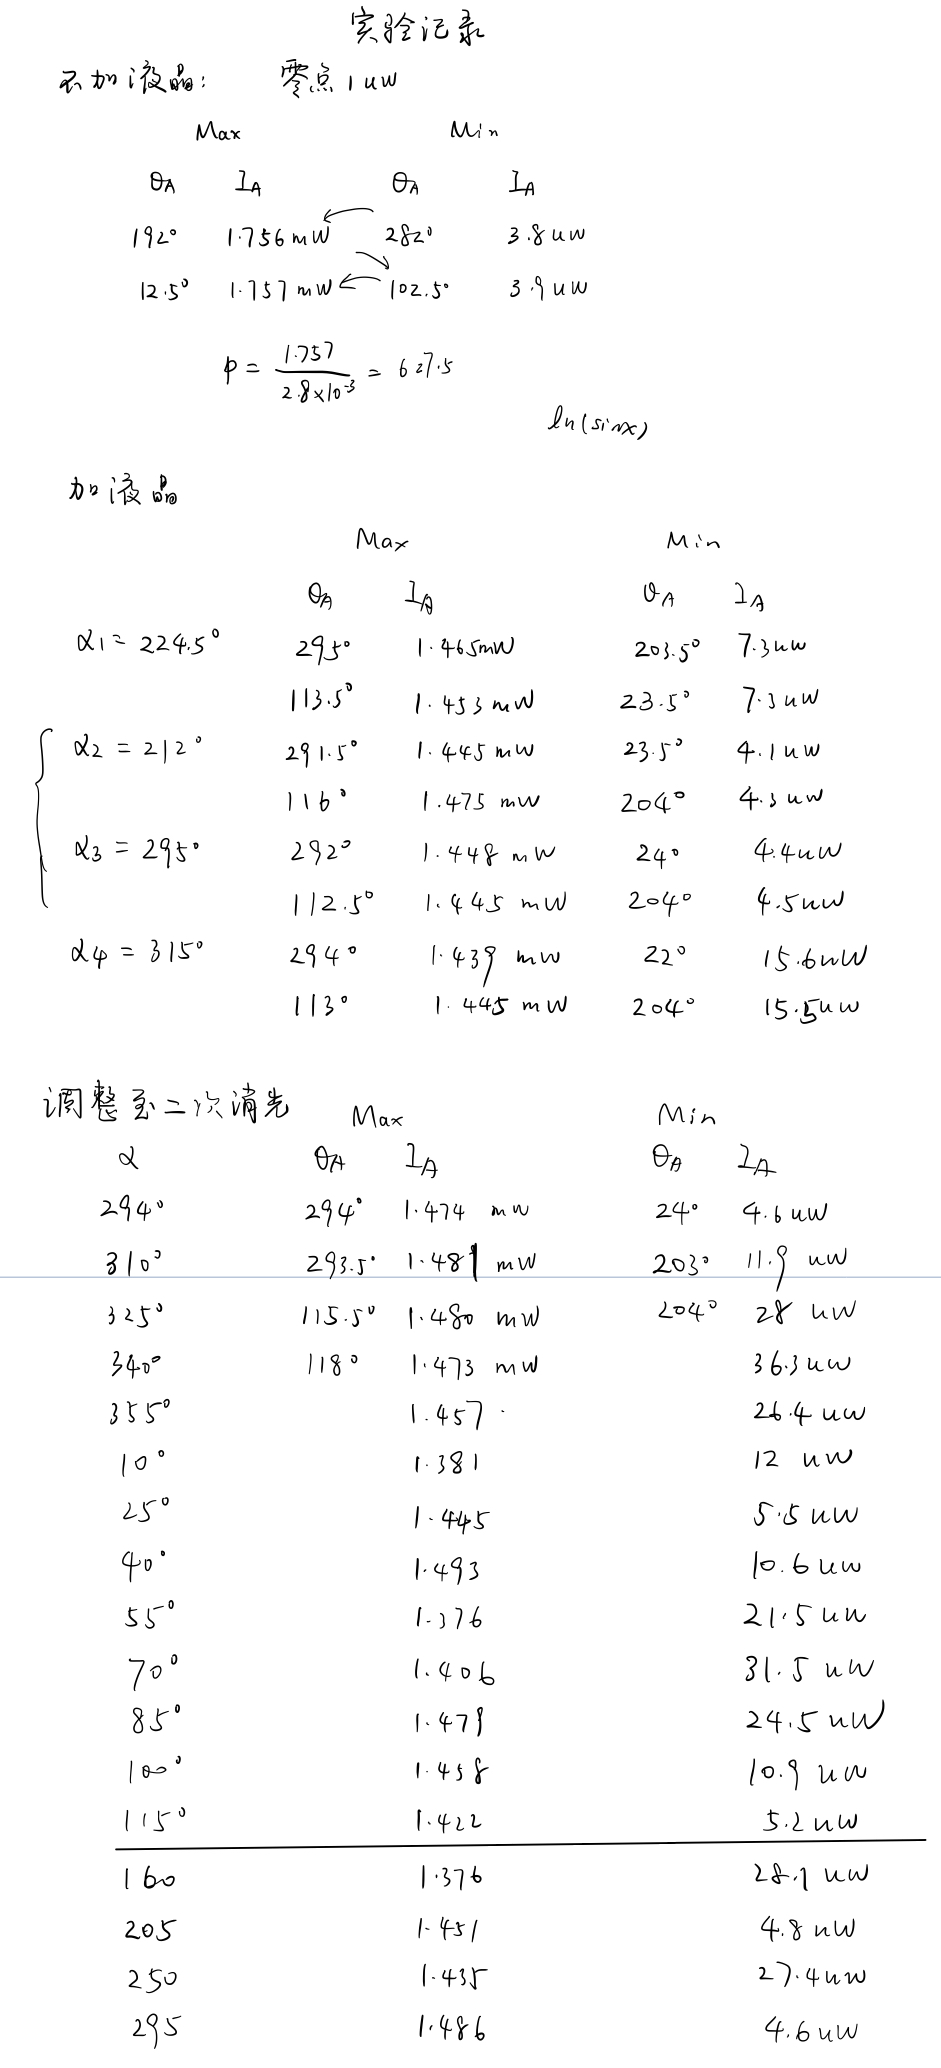 实验记录
不加液晶: 零点1uw
Max Min
θA IA θA IA
192° 1.756mW 282° 3.8uw
12.5° 1.757mW 102.5° 3.9uW
p = 1.757 / 2.8×10⁻³ = 627.5
ln(sinx)
加液晶
Max Min
θA IA θA IA
α1 = 224.5° 295° 1.465mW 203.5° 7.3uw
113.5° 1.453mW 23.5° 7.3uW
α2 = 212° 291.5° 1.445mW 23.5° 4.1uW
116° 1.475mW 204° 4.3uW
α3 = 295° 292° 1.448mW 24° 4.4uW
112.5° 1.445mW 204° 4.5uW
α4 = 315° 294° 1.439mW 22° 15.6uW
113° 1.445mW 204° 15.5uw
调整至二次消光 Max Min
α θA IA θA IA
294° 294° 1.474mW 24° 4.6uW
310° 293.5° mW 203° 11.9uW
325° 115.5° 1.480mW 204° 28uW
340° 118° 1.473mW 36.3uW
355° 1.457 26.4uw
10° 1.381 12uW
25° 1.445 5.5uW
40° 1.493 10.6uw
55° 1.376 21.5uW
70° 1.406 31.5uW
85° 24.5uW
100° 1.458 10.9uW
115° 1.422 5.2uW
160 1.376 uW
205 1.451 4.8uW
250 1.435 27.4uw
295 1.486 4.6uW